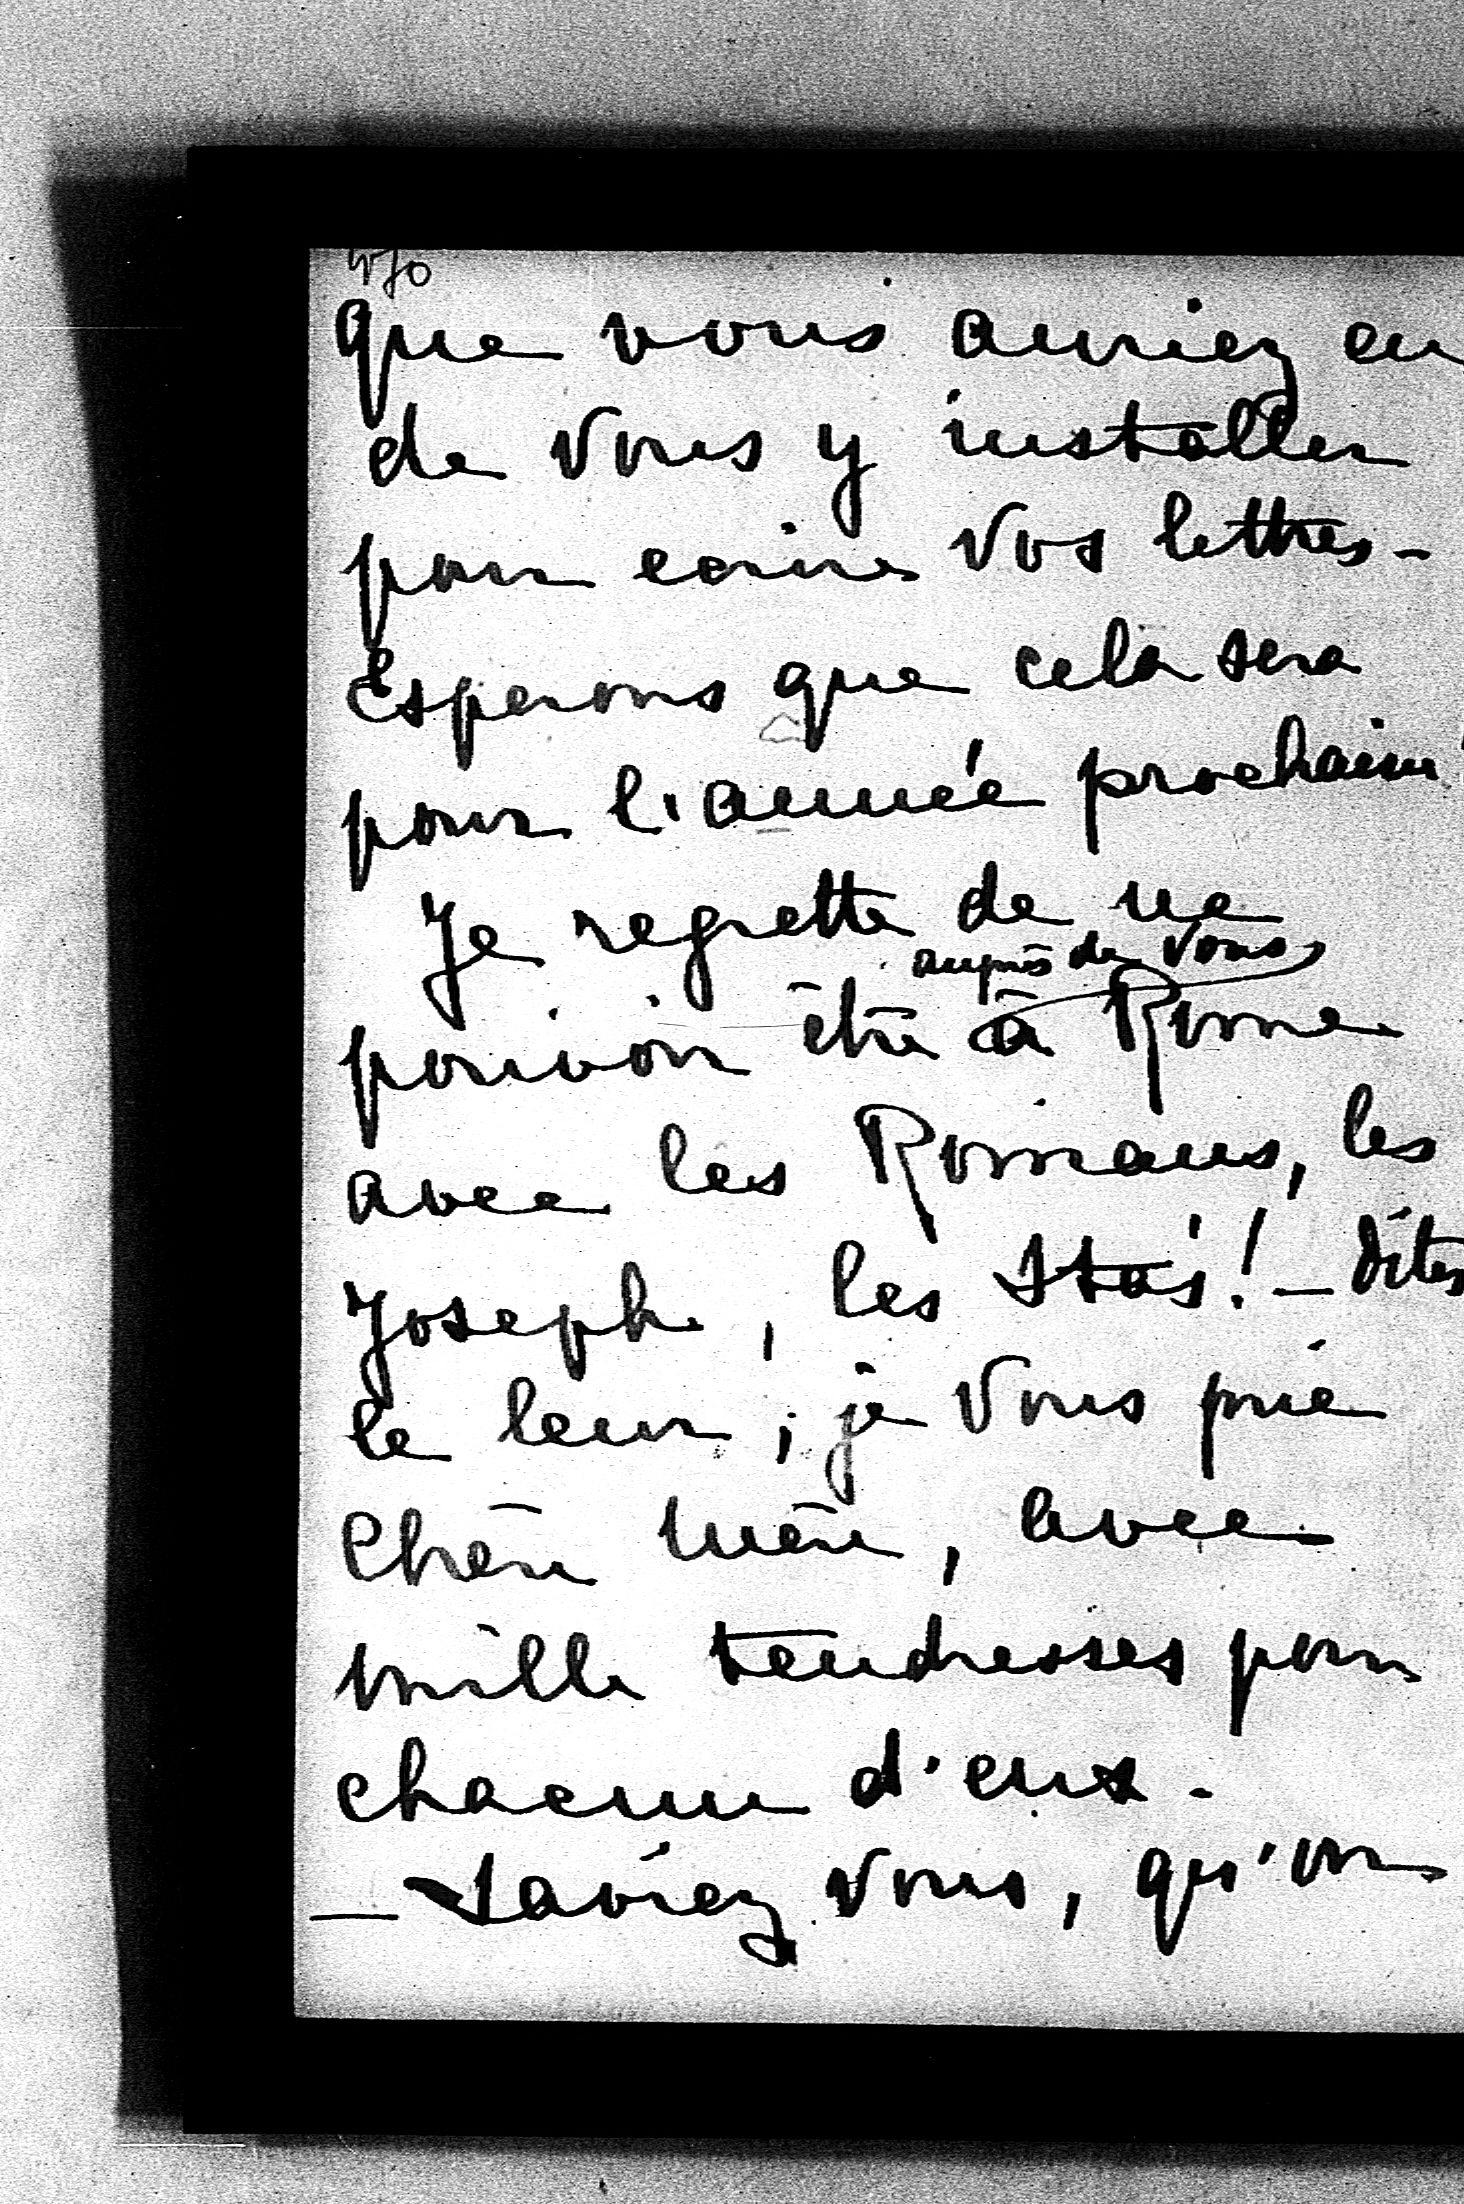 570
que vous auriez eu
de vous y installer
pour ecrire vos lettres -
Esperons que cela sera
pour l'année prochaine
Je regrette de ne
auprès de vous
pouvoir être à Rome
avec les Romans, les
Joseph, les Stas! - dites
le leur ; je vous prie
Chère mère, avec
mille tendresses pour
chacun d'eux -
- Saviez vous, qu'on